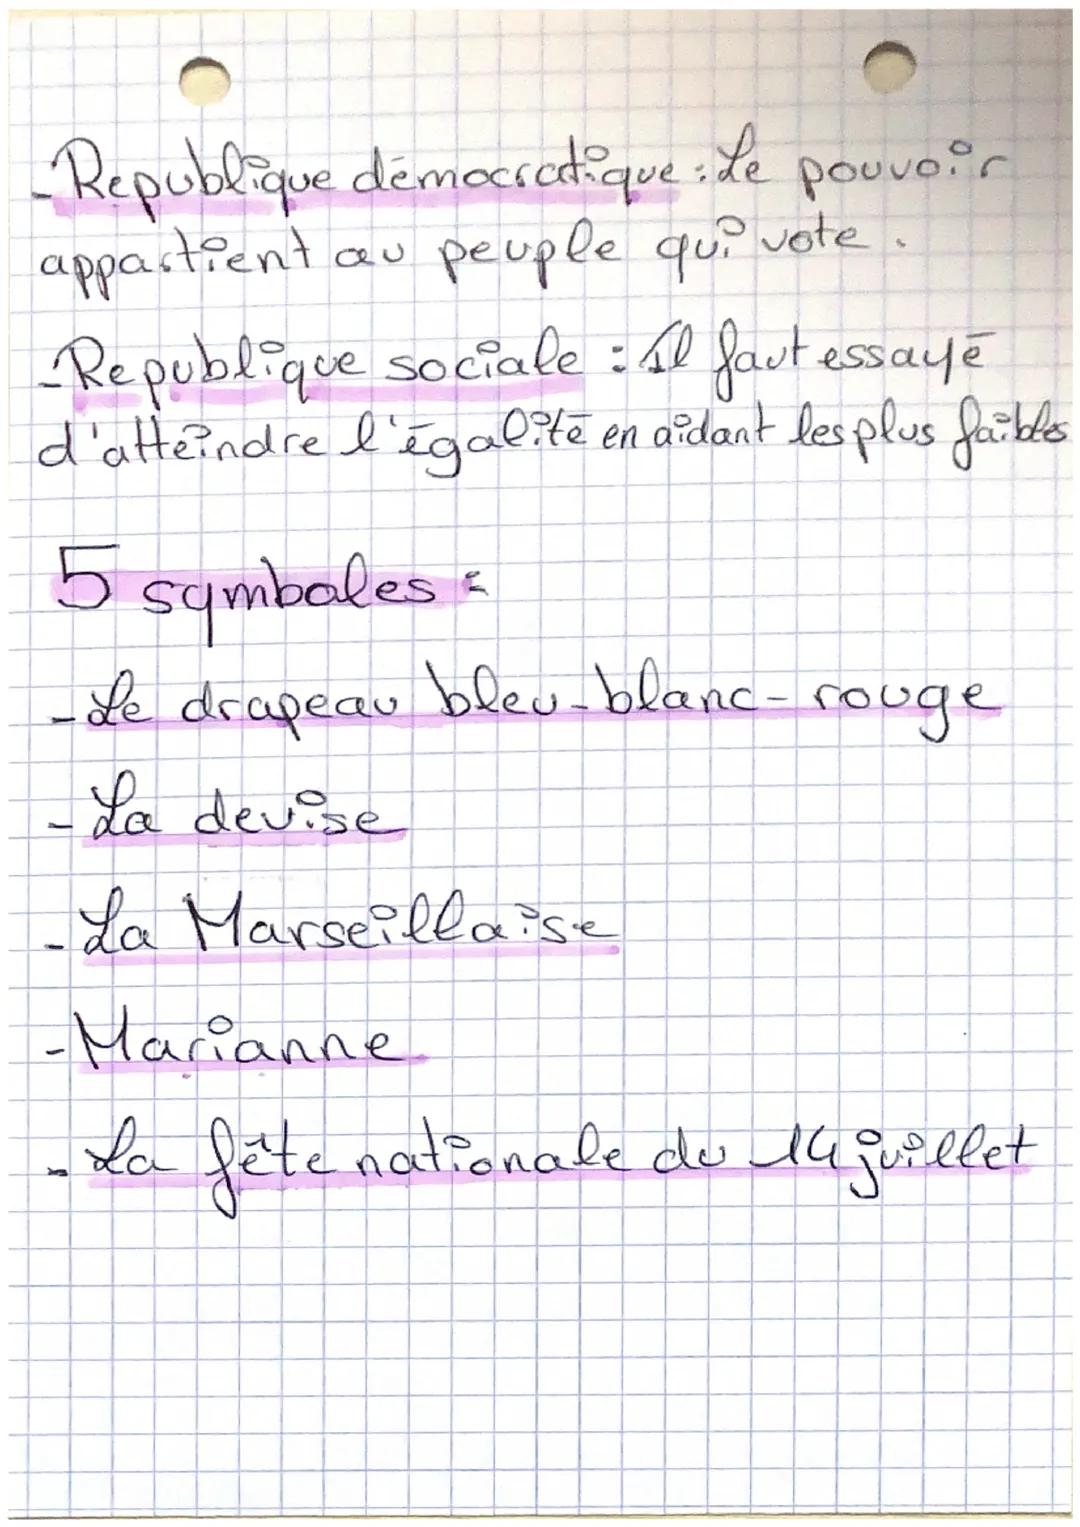 - Republique démocratique : Le pouvoir
appartient au peuple qui vote.
- Republique sociale : Il faut essayé
d'atteindre l'égalité en aidant les plus faibles
5 symboles :
- Le drapeau bleu-blanc-rouge
- La devise
- La Marseillaise
- Marianne
- La fête nationale du 14 juillet